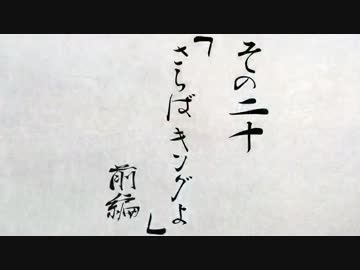 その二十
「さらばキングよ」
前編